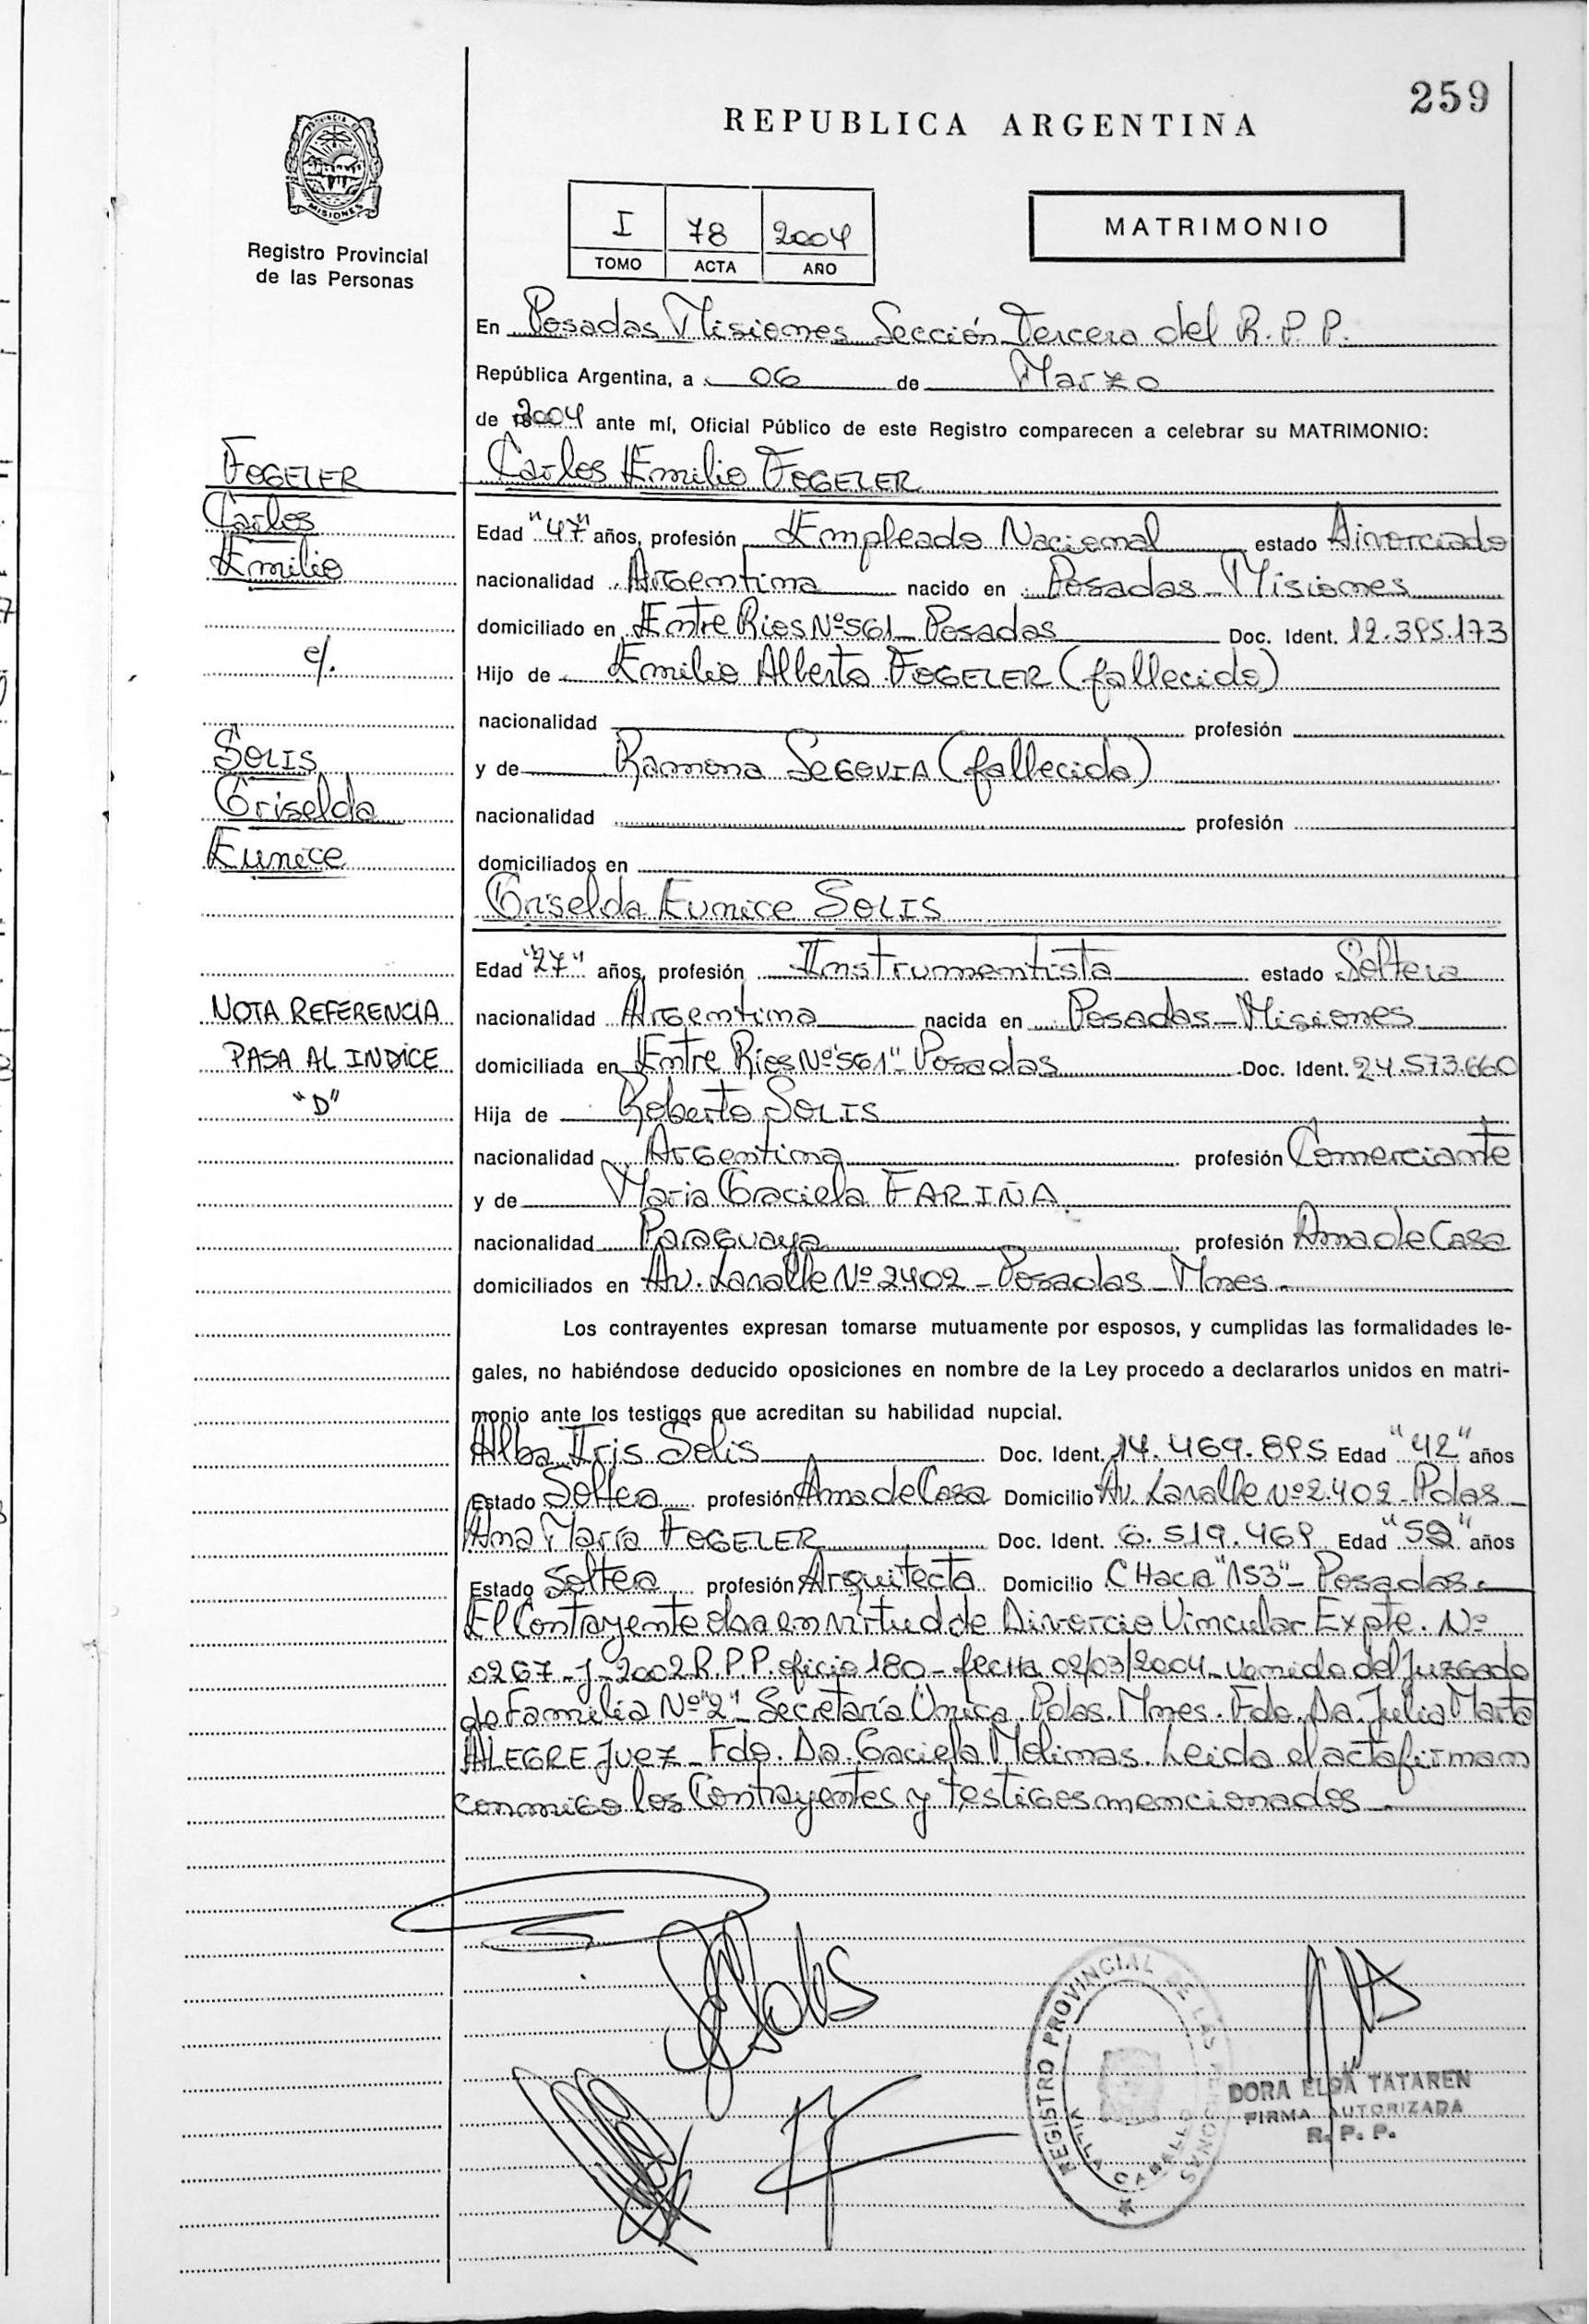 259
REPUBLICA ARGENTINA
PROVINCIA DE
MISIONES
Registro Provincial
de las Personas
I 78 2004
TOMO ACTA AÑO
MATRIMONIO
En Posadas Misiones Sección Tercera del R.P.P.
República Argentina, a 06 de Marzo
de 2004 ante mí, Oficial Público de este Registro comparecen a celebrar su MATRIMONIO:
FOGELER
Carlos
Emilio
c/.
SOLIS
Griselda
Eunice
NOTA REFERENCIA
PASA AL INDICE
"D"
Carlos Emilio FOGELER
Edad "47" años, profesión Empleado Nacional estado Divorciado
nacionalidad Argentina nacido en Posadas - Misiones
domiciliado en Entre Rios Nº 561 - Posadas Doc. Ident. 12.395.173
Hijo de Emilio Alberto FOGELER (fallecido)
nacionalidad profesión
y de Ramona SEGOVIA (fallecida)
nacionalidad profesión
domiciliados en
Griselda Eunice SOLIS
Edad "27" años, profesión Instrumentista estado Soltera
nacionalidad Argentina nacida en Posadas - Misiones
domiciliada en Entre Rios Nº "561" - Posadas Doc. Ident. 24.573.660
Hija de Roberto SOLIS
nacionalidad Argentina profesión Comerciante
y de Maria Graciela FARIÑA
nacionalidad Paraguaya profesión Ama de Casa
domiciliados en Av. Lavalle Nº 2402 - Posadas - Mnes -
Los contrayentes expresan tomarse mutuamente por esposos, y cumplidas las formalidades le-
gales, no habiéndose deducido oposiciones en nombre de la Ley procedo a declararlos unidos en matri-
monio ante los testigos que acreditan su habilidad nupcial.
Alba Iris Solis Doc. Ident. 14.469.895 Edad "42" años
Estado Soltera profesión Ama de Casa Domicilio Av. Lavalle Nº 2.402 - Pdas -
Ana María FOGELER Doc. Ident. 6.519.469 Edad años
Estado Soltera profesión Arquitecta Domicilio CHacra "153" - Posadas.
El Contrayente obra en virtud de Divorcio Vincular Expte. Nº
0267 - J - 2002 R.P.P. oficio 180 - fecha 02/03/2004 - venido del Juzgado
de Familia Nº "2" - Secretaría Única. Pdas. Mnes. Fdo. Da. Julia Marta
ALEGRE Juez - Fdo. Da. Graciela Molinas. Leida el acta firman
conmigo los Contrayentes y testigos mencionados -
REGISTRO PROVINCIAL DE LAS PERSONAS
VILLA CABELLO
DORA ELSA TATAREN
FIRMA AUTORIZADA
R. P. P.